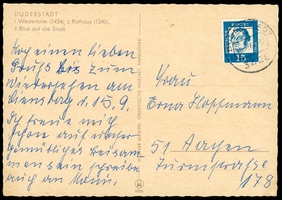 DUDERSTADT
1. Westerturm (1424), 2. Rathaus (1240),
3. Blick auf die Stadt
Noch einen lieben
Gruß bis zum
Wiedersehen am
Dienstag d. 15.9.
Ich freue mich
schon auf unser
gemütliches Beisam-
mensein
auch an
15
Frau
Erna Hoffmann
51 Aachen
Turmstraße
178